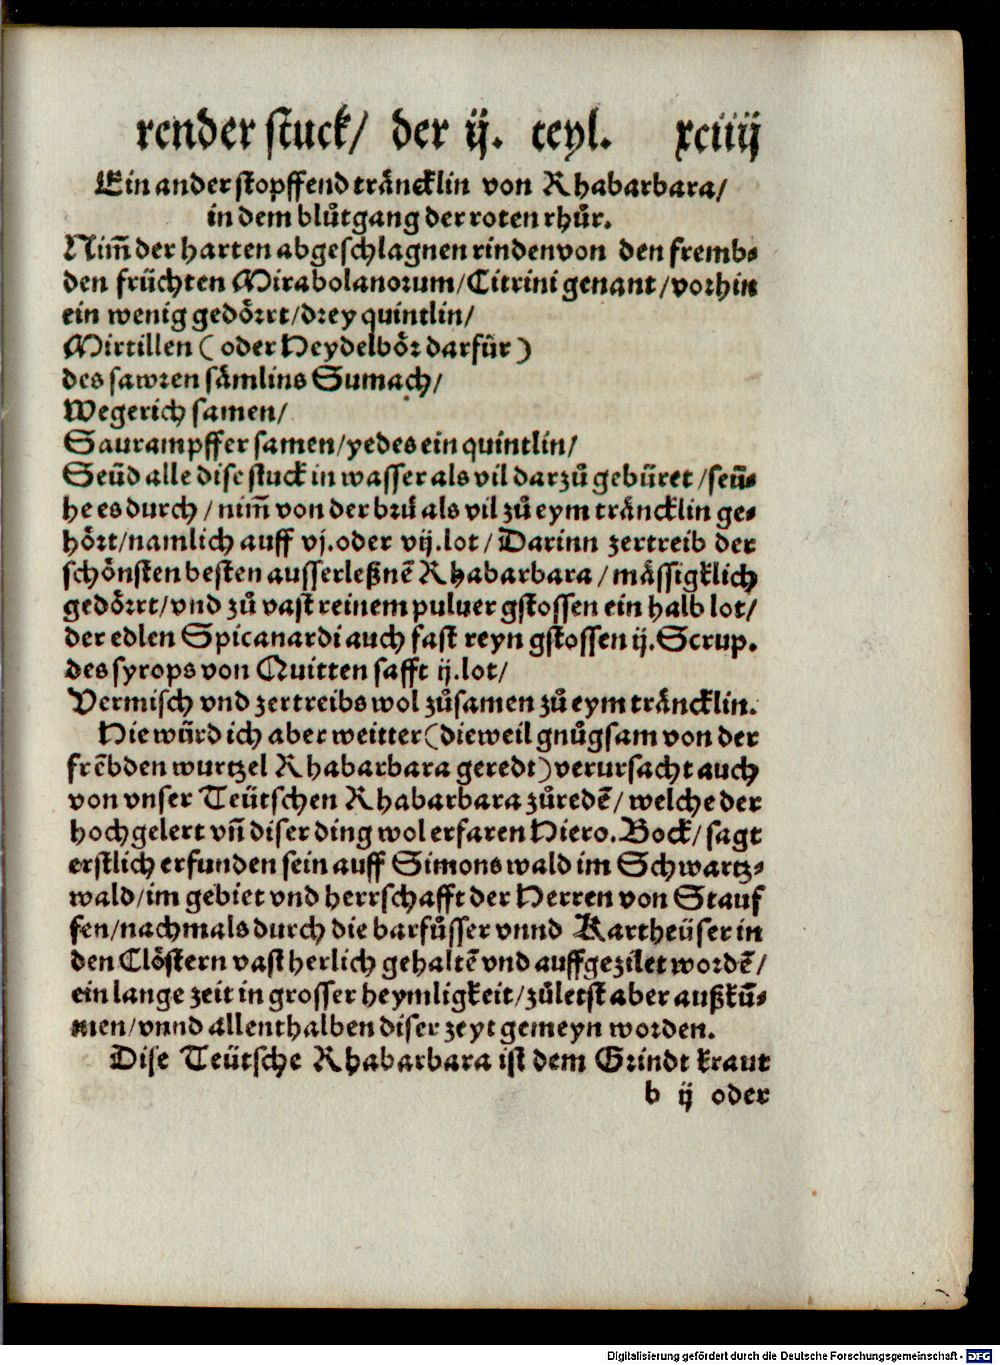 render stuck/ der ij. teyl. xciiij
Ein ander stopffend träncklin von Rhabarbara/
in dem blůtgang der roten rhůr.
Nim̄ der harten abgeschlagnen rinden von den fremb⸗
den früchten Mirabolanorum/Citrini genant/vorhin
ein wenig gedörrt/drey quintlin/
Mirtillen (oder Heydelbör darfür)
des sawren sämlins Sumach/
Wegerich samen/
Saurampffer samen/yedes ein quintlin/
Seüd alle dise stuck in wasser als vil darzů gebüret/seü⸗
he es durch/nim̄ von der brü als vil zů eym träncklin ge⸗
hört/namlich auff vj.oder vij.lot/Darinn zertreib der
schönsten besten ausserleßnē Rhabarbara/mässigklich
gedörrt/vnd zů vast reinem puluer gstossen ein halb lot/
der edlen Spicanardi auch fast reyn gstossen ij.Scrup.
des syrops von Quitten safft ij.lot/
Vermisch vnd zertreibs wol zůsamen zů eym träncklin.
Hie würd ich aber weitter(dieweil gnůgsam von der
frēbden wurtzel Rhabarbara geredt)verursacht auch
von vnser Teütschen Rhabarbara zůredē/welche der
hochgelert vn̄ diser ding wol erfaren Hiero.Bock/sagt
erstlich erfunden sein auff Simons wald im Schwartz⸗
wald/im gebiet vnd herrschafft der Herren von Stauf
fen/nachmals durch die barfůsser vnnd Kartheüser in
den Clöstern vast herlich gehaltē vnd auffgezilet wordē/
ein lange zeit in grosser heymligkeit/zůletst aber außkū⸗
men/vnnd allenthalben diser zeyt gemeyn worden.
Dise Teütsche Rhabarbara ist dem Grindt kraut
b ij oder
Digitalisierung gefördert durch die Deutsche Forschungsgemeinschaft - DFG